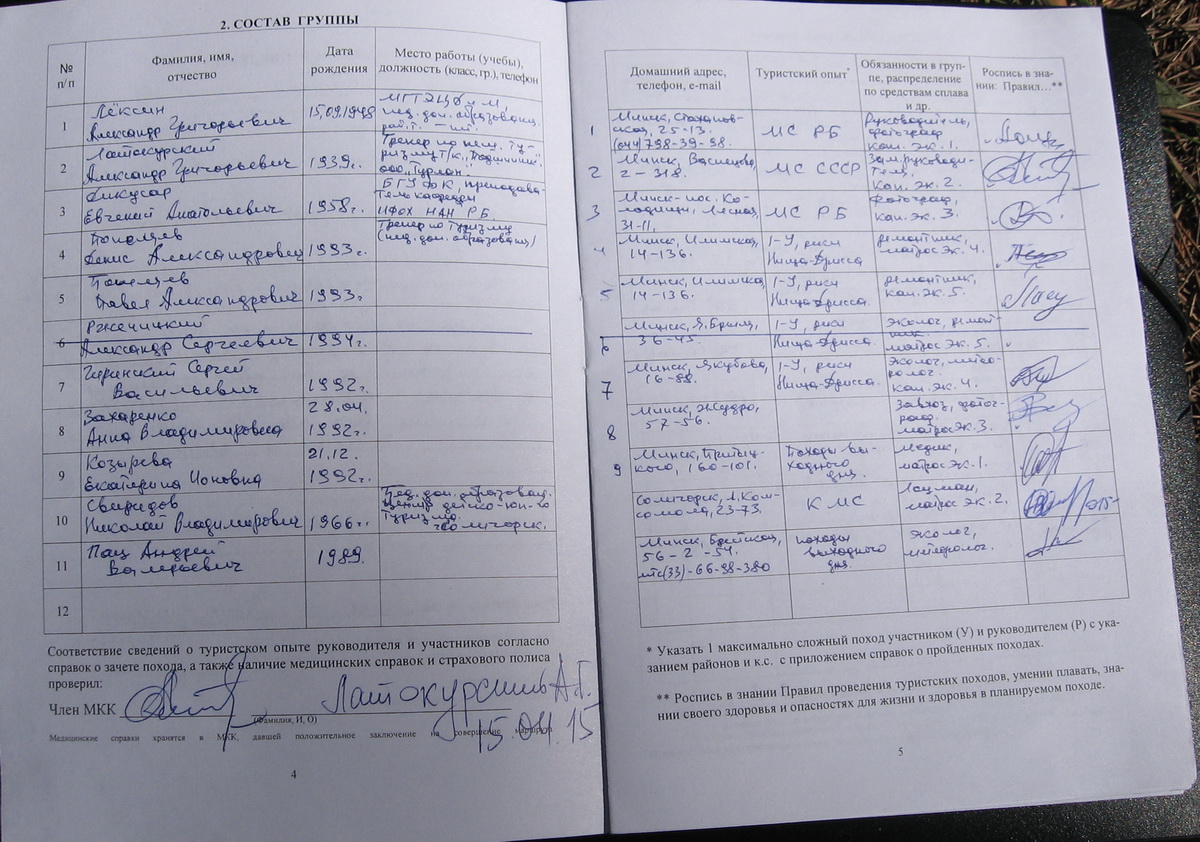 2. СОСТАВ ГРУППЫ
№ п/п
Фамилия, имя, отчество
Дата рождения
Место работы (учебы), должность (класс, гр.), телефон
1
Лёксин
Александр Григорьевич
15.09.1948
МГТЭЦД и М,
пед. доп. образован.
2
Латокурский
Александр Григорьевич
1939г.
Тренер по пеш. ту-
ризму т/к
ООО "Турлан.
3
Евгений Анатольевич
1958г.
БГУФК, преподава-
тель кафедры
НАН РБ.
4
Денис Александрович
1993г.
Тренер по туризму
(пед. доп. образования)
5
Павел Александрович
1993г.
6
Ржечицкий
Александр Сергеевич
1994г.
7
Сергей
Васильевич
1992г.
8
Захаренко
Анна Владимировна
28.04.
1992г.
9
Козырева
Екатерина Ионовна
21.12.
1992г.
10
Свиридов
Николай Владимирович
1966г.
Пед. доп. образован.
центр детско-юн-го
туризма
г. Солигорск.
11
Пац Андрей
Валерьевич
1989.
12
Соответствие сведений о туристском опыте руководителя и участников согласно
справок о зачете похода, а также наличие медицинских справок и страхового полиса
проверил:
Член МКК
Латокурский А.Г.
(Фамилия, И, О)
15.04.15
Медицинские справки хранятся в МКК, давшей положительное заключение на совершение маршрута
4
Домашний адрес, телефон, e-mail
Туристский опыт*
Обязанности в груп-
пе, распределение
по средствам сплава
и др.
Роспись в зна-
нии: Правил…**
1
Минск, Стаханов-
ская, 25-13.
(044)798-39-98.
МС РБ
Руководитель,
фотограф
Кап. эк. 1.
2
Минск, Васнецова,
2-318.
МС СССР
Зам. руководи-
теля,
Кап. эк. 2.
3
Минск-пос. Ко-
лодищи, Лесная,
31-11,
МС РБ
Фотограф,
кап. эк. 3.
4
Минск, Илимская,
14-136.
1-У, реки
Нища-Дрисса
Ремонтник,
матрос эк. 4.
5
Минск, Илимская,
14-136.
1-У, реки
Нища-Дрисса.
Ремонтник,
кап. эк. 5.
6
Минск, Я.Брыля,
36-45.
1-У, реки
Нища-Дрисса.
Эколог, ремонт-
ник
матрос эк. 5.
7
Минск, Якубова,
16-88.
1-У, реки
Нища-Дрисса.
Эколог, метео-
ролог.
кап. эк. 4.
8
Минск, Жудро,
57-56.
Завхоз, фотог-
раф.
матрос эк. 3.
9
Минск, Притыц-
кого, 160-101.
Походы вы-
ходного
дня.
Медик,
матрос эк. 1.
Солигорск, Л.Ком-
сомола, 23-73.
КМС
Лоцман,
матрос эк. 2.
Минск,
56-2-54.
мтс(33)-66-98-380
походы
выходного
дня.
Эколог,
метеоролог.
* Указать 1 максимально сложный поход участником (У) и руководителем (Р) с ука-
занием районов и к.с. с приложением справок о пройденных походах.
** Роспись в знании Правил проведения туристских походов, умении плавать, зна-
нии своего здоровья и опасностях для жизни и здоровья в планируемом походе.
5